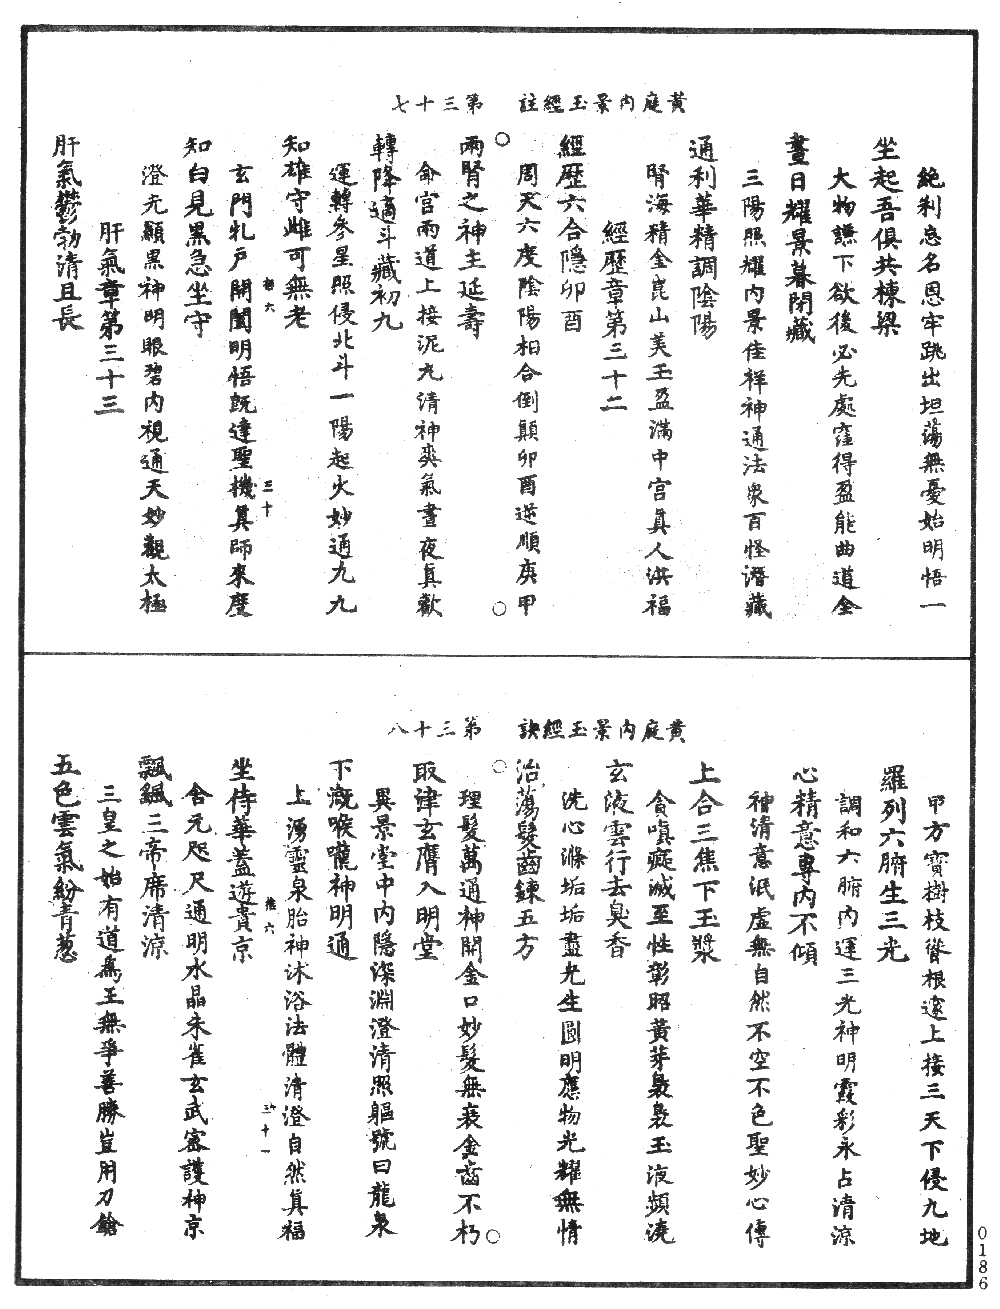 黃庭內景玉經註　第三十七
絕利忘名恩牢跳出坦蕩無憂始明悟一
坐起吾俱共棟梁
大物謙下欲後必先處窪得盈能曲道全
晝日耀景暮閉藏
三陽照耀內景佳祥神通法衆百怪潛藏
通利華精調陰陽
腎海精金崑山美玉盈滿中宮真人洪福
經歷章第三十二
經歷六合隱卯酉
周天六度陰陽相合倒顛卯酉逆順庚甲
兩腎之神主延壽
命官兩道上接泥丸清神爽氣晝夜真歡
轉降適斗藏初九
運轉參星照侵北斗一陽起火妙通九九
知雄守雌可無老
玄門牝戶開闔明悟旣達聖機真師來度
知白見黑急坐守
澄光顯黑神明眼碧內視通天妙觀太極
肝氣章第三十三
肝氣鬱勃清且長
三十
黃庭內景玉經訣　第三十八
甲方寶樹枝聳根遠上接三天下侵九地
羅列六腑生三光
調和六腑內運三光神明霞彩永占清涼
心精意專內不傾
神清意泯虛無自然不空不色聖妙心傳
上合三焦下玉漿
貪嗔癡滅至性彰昭黃芽裊裊玉液頻澆
玄液雲行去臭香
洗心滌垢垢盡光生圓明應物光耀無情
治蕩髮齒鍊五方
理髮萬通神開金口妙髮無衰金齒不朽
取津玄膺入明堂
異景堂中內隱深淵澄清照軀號曰龍泉
下溉喉嚨神明通
上湧靈泉胎神沐浴法體清澄自然真福
坐侍華蓋遊貴京
含元咫尺通明水晶朱雀玄武密護神京
飄颻三帝席清涼
三皇之始有道爲王無爭善勝豈用刀鎗
五色雲氣紛青葱
三十一
0186